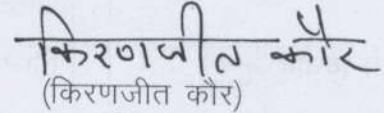 किरणजीत कौर
(किरणजीत कौर)